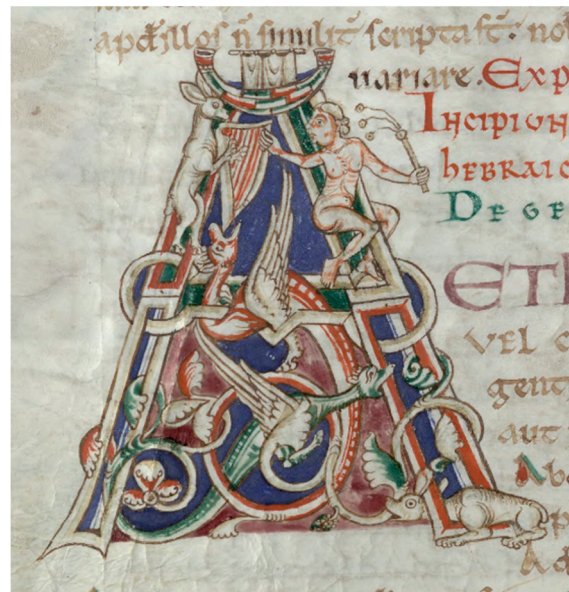 apđ illos n̄ similit̄ scripta st̄. no
uariare. Exp
Incipiun
hebraic
De ge
AETh
vel c
gent
aut
Ab
p
Ad